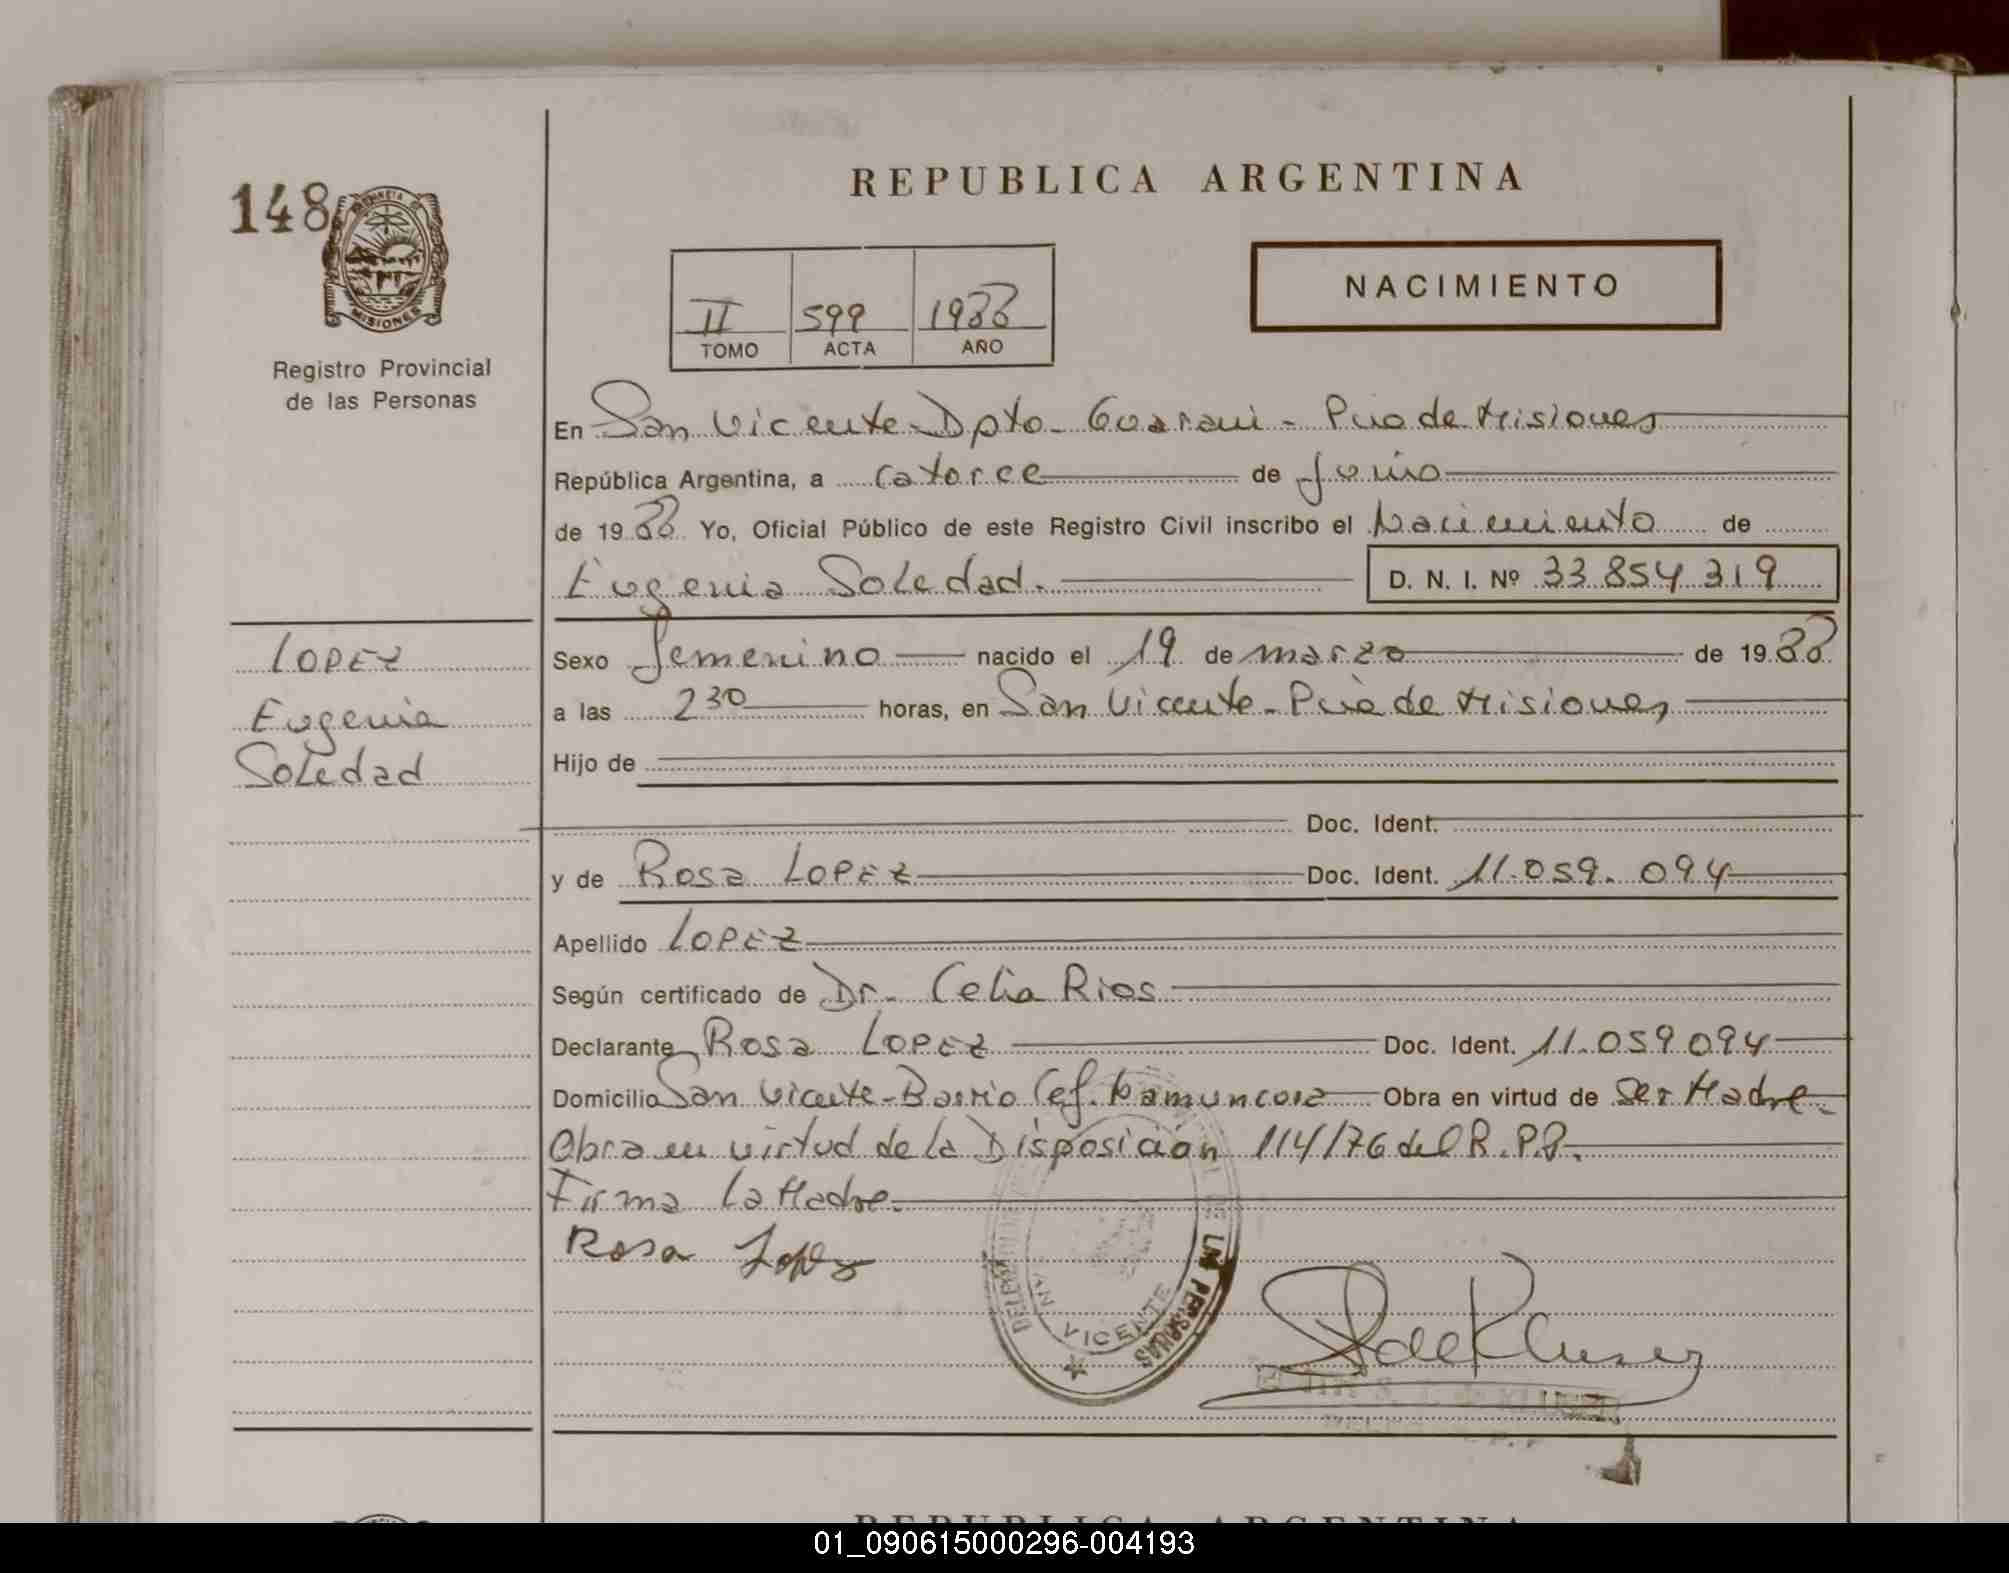 REPUBLICA ARGENTINA
148
MISIONES
Registro Provincial
de las Personas
II 599 1988
TOMO ACTA AÑO
NACIMIENTO
En San Vicente - Dpto - Guarani - Pcia de Misiones
República Argentina, a catorce de Junio
de 1988 Yo, Oficial Público de este Registro Civil inscribo el Nacimiento de
Eugenia Soledad. D. N. I. Nº 33 854 319
LOPEZ
Eugenia
Soledad
Sexo femenino nacido el 19 de marzo de 1988
a las 2 30 horas, en San Vicente - Pcia de Misiones
Hijo de
Doc. Ident.
y de Rosa LOPEZ Doc. Ident. 11.059.094
Apellido LOPEZ
Según certificado de Dr. Celia Rios
Declarante Rosa LOPEZ Doc. Ident. 11.059 094
Domicilio San Vicente - Barrio Cef. Obra en virtud de Ser Madre.
Obra en virtud de la Disposición 114/76 del R.P.P.
Firma La Madre.
Rosa Lopez
PERSONAS
VICENTE
de Kluser
KLUSER
REPUBLICA ARGENTINA
01_090615000296-004193